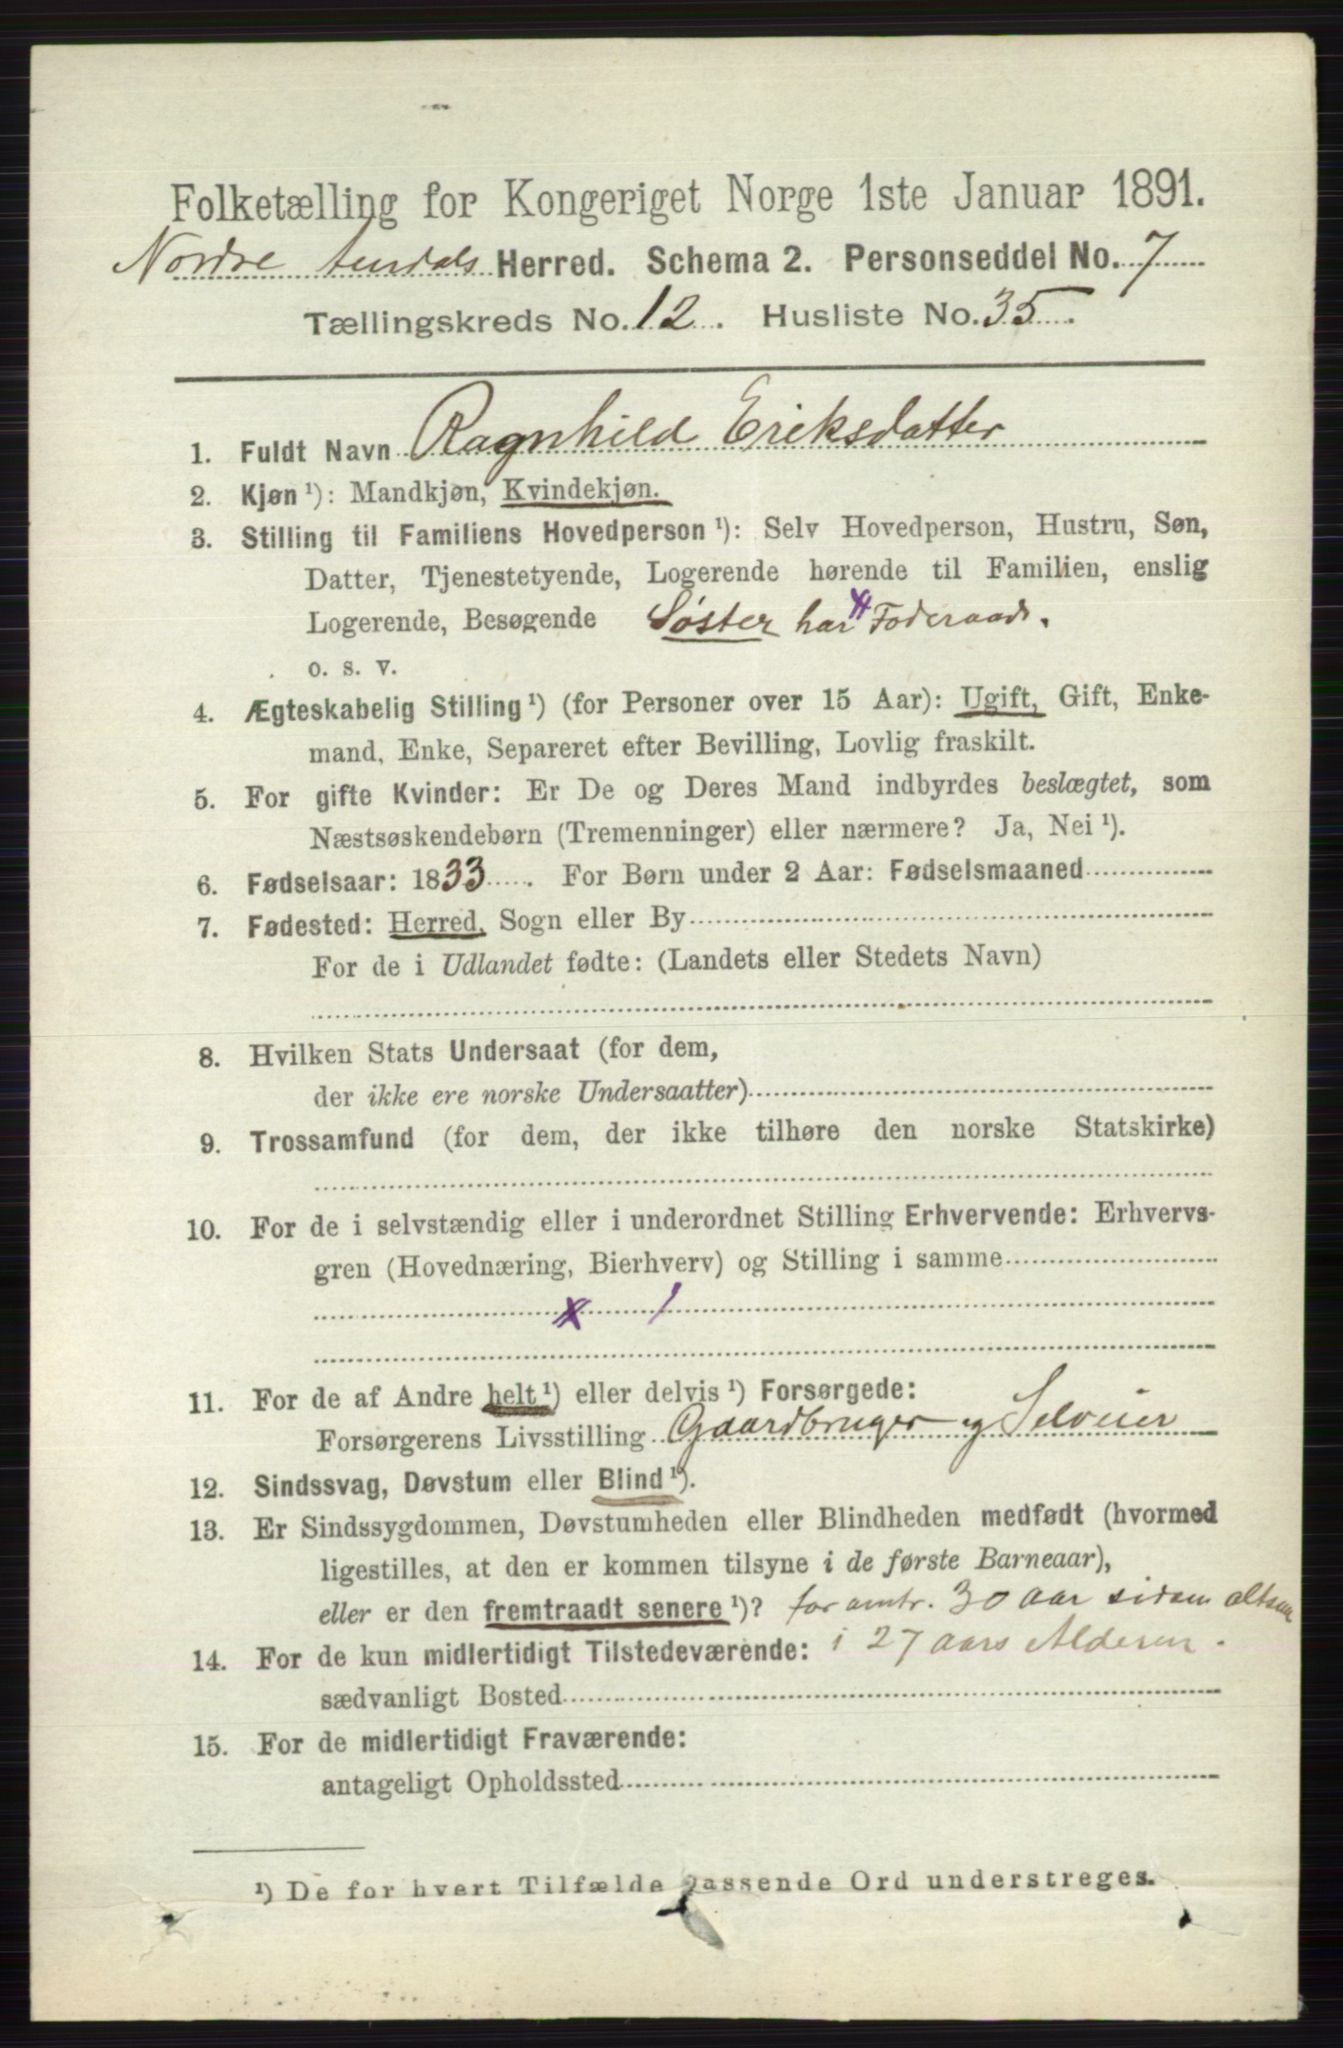 Folketælling for Kongeriget Norge 1ste Januar 1891.
Nordre Aurdals Herred. Schema 2. Personseddel No. 7
Tællingskreds No. 12. Husliste No. 35.
1. Fuldt Navn Ragnhild Eriksdatter
2. Kjøn ¹): Mandkjøn, Kvindekjøn.
3. Stilling til Familiens Hovedperson ¹): Selv Hovedperson, Hustru, Søn,
Datter, Tjenestetyende, Logerende hørende til Familien, enslig
Logerende, Besøgende Søster har Foderaad.
o. s. v.
4. Ægteskabelig Stilling ¹) (for Personer over 15 Aar): Ugift, Gift, Enke-
mand, Enke, Separeret efter Bevilling, Lovlig fraskilt.
5. For gifte Kvinder: Er De og Deres Mand indbyrdes beslægtet, som
Næstsøskendebørn (Tremenninger) eller nærmere? Ja, Nei ¹).
6. Fødselsaar: 1833. For Børn under 2 Aar: Fødselsmaaned
7. Fødested: Herred, Sogn eller By
For de i Udlandet fødte: (Landets eller Stedets Navn)
8. Hvilken Stats Undersaat (for dem,
der ikke ere norske Undersaatter)
9. Trossamfund (for dem, der ikke tilhøre den norske Statskirke)
10. For de i selvstændig eller i underordnet Stilling Erhvervende: Erhvervs-
gren (Hovednæring, Bierhverv) og Stilling i samme
x 1
11. For de af Andre helt ¹) eller delvis ¹) Forsørgede:
Forsørgerens Livsstilling Gaardbruger og Selveier
12. Sindssvag, Døvstum eller Blind ¹).
13. Er Sindssygdommen, Døvstumheden eller Blindheden medfødt (hvormed
ligestilles, at den er kommen tilsyne i de første Barneaar),
eller er den fremtraadt senere ¹)? for omtr. 30 Aar siden altsaa
i 27 aars Alderen.
14. For de kun midlertidigt Tilstedeværende:
sædvanligt Bosted
15. For de midlertidigt Fraværende:
antageligt Opholdssted
¹) De for hvert Tilfælde passende Ord understreges.